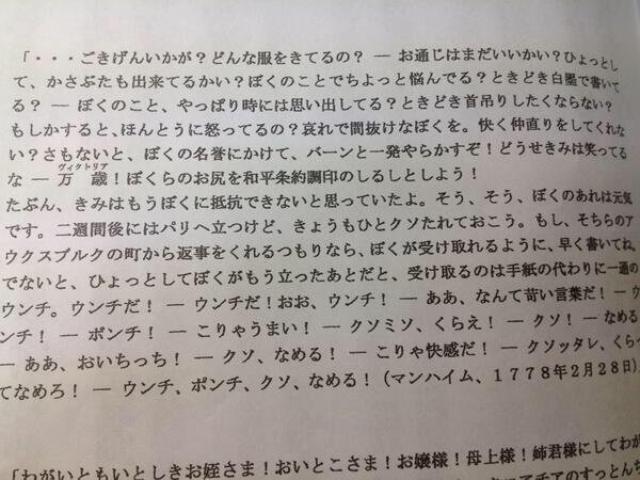 「・・・ごきげんいかが？どんな服をきてるの？ ― お通じはまだいいかい？ひょっとし
て、かさぶたも出来てるかい？ぼくのことでちょっと悩んでる？ときどき白墨で書いて
る？ ― ぼくのこと、やっぱり時には思い出してる？ときどき首吊りしたくならない？
もしかすると、ほんとうに怒ってるの？哀れで間抜けなぼくを。快く仲直りをしてくれな
い？さもないと、ぼくの名誉にかけて、バーンと一発やらかすぞ！どうせきみは笑ってる
ヴィクトリア
な ― 万 歳！ぼくらのお尻を和平条約調印のしるしとしよう！
たぶん、きみはもうぼくに抵抗できないと思っていたよ。そう、そう、ぼくのあれは元気
です。二週間後にはパリへ立つけど、きょうもひとクソたれておこう。もし、そちらのア
ウクスブルクの町から返事をくれるつもりなら、ぼくが受け取れるように、早く書いてね、
でないと、ひょっとしてぼくがもう立ったあとだと、受け取るのは手紙の代わりに一通の
ウンチ。ウンチだ！ ― ウンチだ！おお、ウンチ！ ― ああ、なんて苛い言葉だ！ ― ウ
ンチ！ ― ポンチ！ ― こりゃうまい！ ― クソミソ、くらえ！ ― クソ！ ― なめる
― ああ、おいちっち！ ― クソ、なめる！ ― こりゃ快感だ！ ― クソッタレ、くら
てなめろ！ ― ウンチ、ポンチ、クソ、なめる！（マンハイム、１７７８年2月28日）
「わがいともいとしきお姪さま！おいとこさま！お嬢様！母上様！姉君様にしてわが